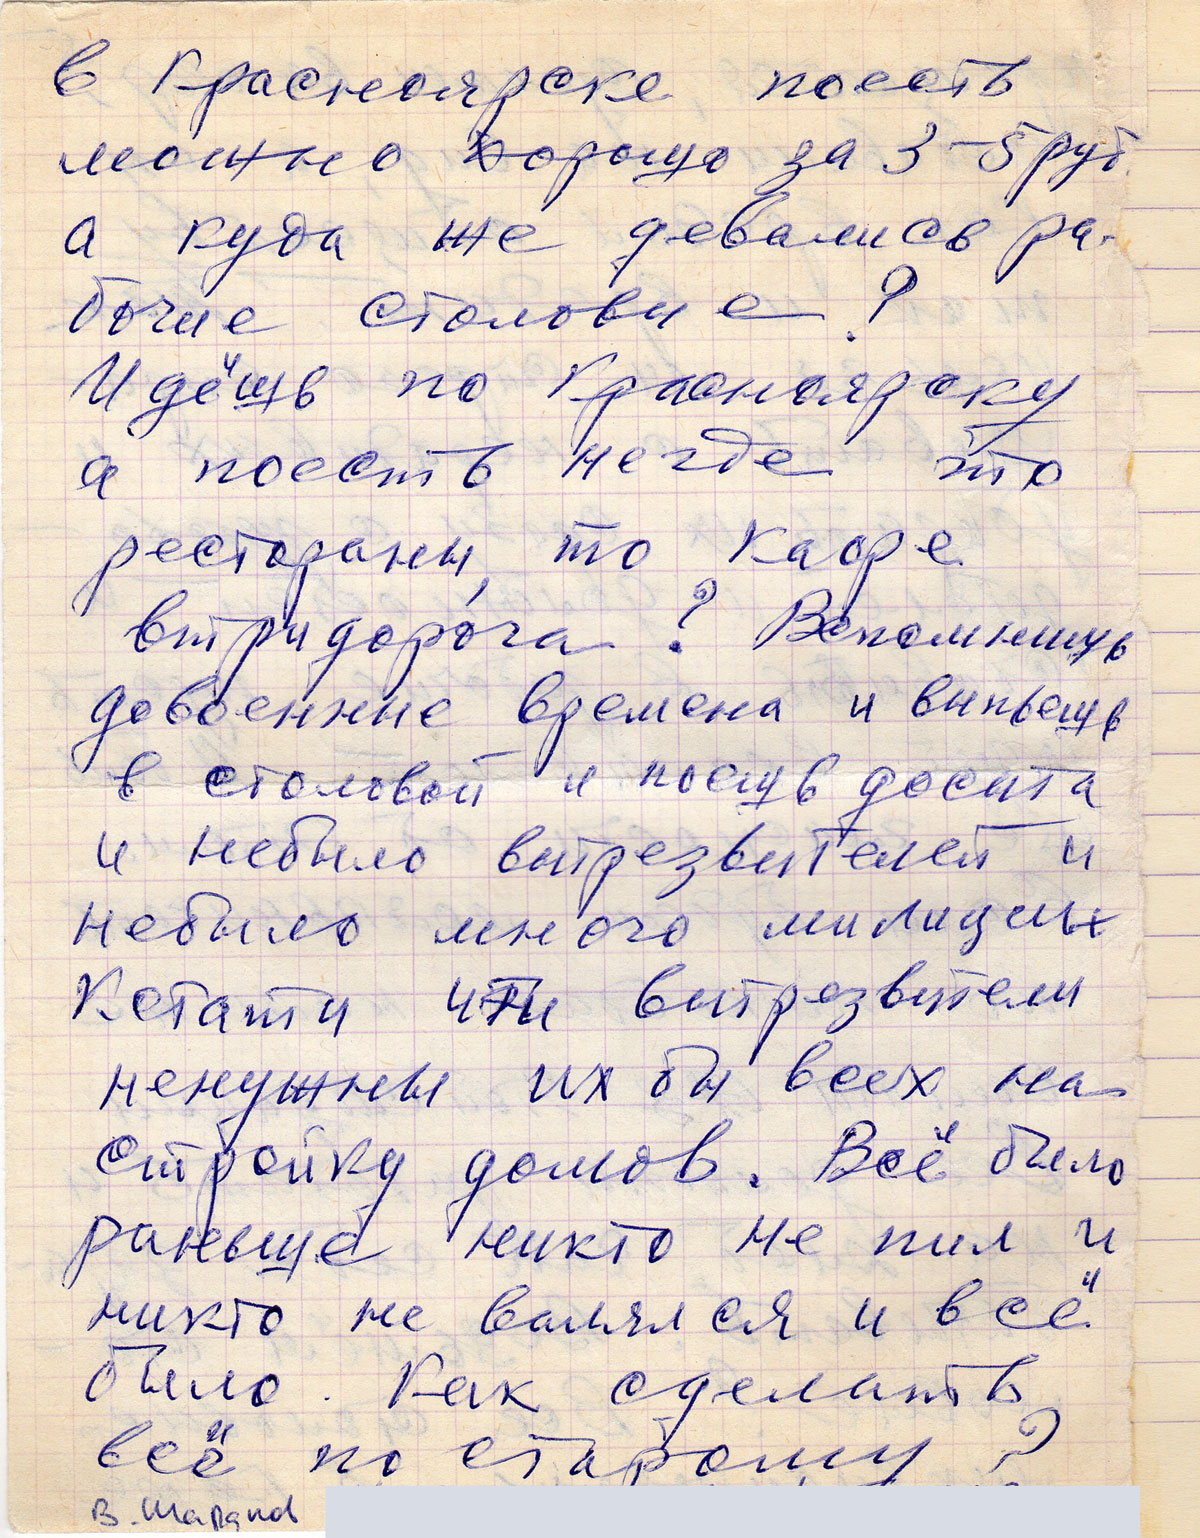 в Красноярске поесть
можно хорошо за 3-5 руб.
а куда же девались ра-
бочие столовые?
Идёшь по Красноярску
а поесть негде это
рестораны, то кафре
втридорога? Вспомнишь
довоенные времена и выпьешь
в столовой и поешь досыта
и небыло вытрезвителей и
небыло много милиции
Кстати эти вытрезвители
ненужны их бы всех на
стройку домов. Всё было
раньше никто не пил и
никто не валялся и всё
было. Как сделать
всё по старому?
В.